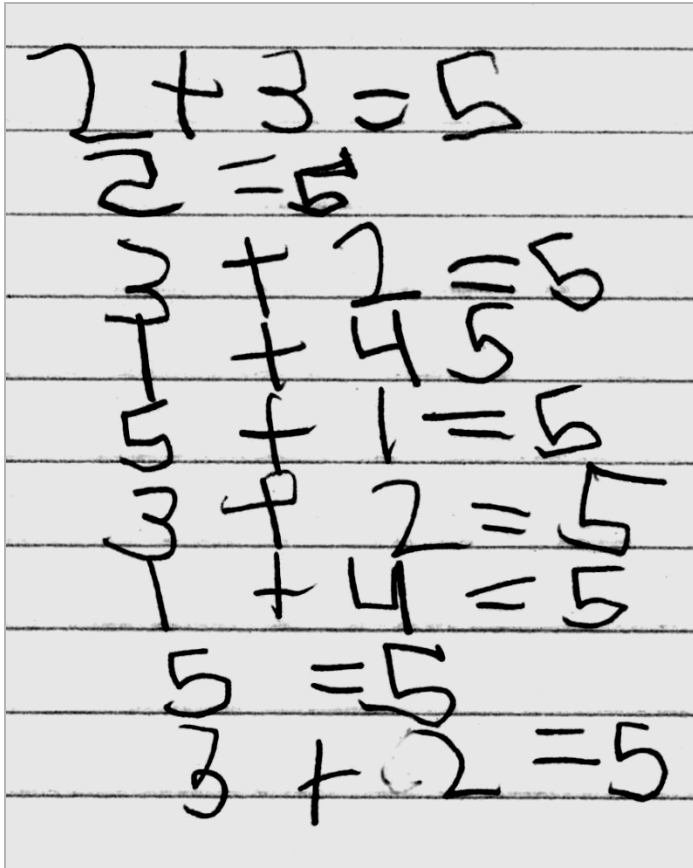 2 + 3 = 5
2 = 5
3 + 2 = 5
1 + 4 5
5 + 1 = 5
3 + 2 = 5
1 + 4 = 5
5 = 5
3 + 2 = 5